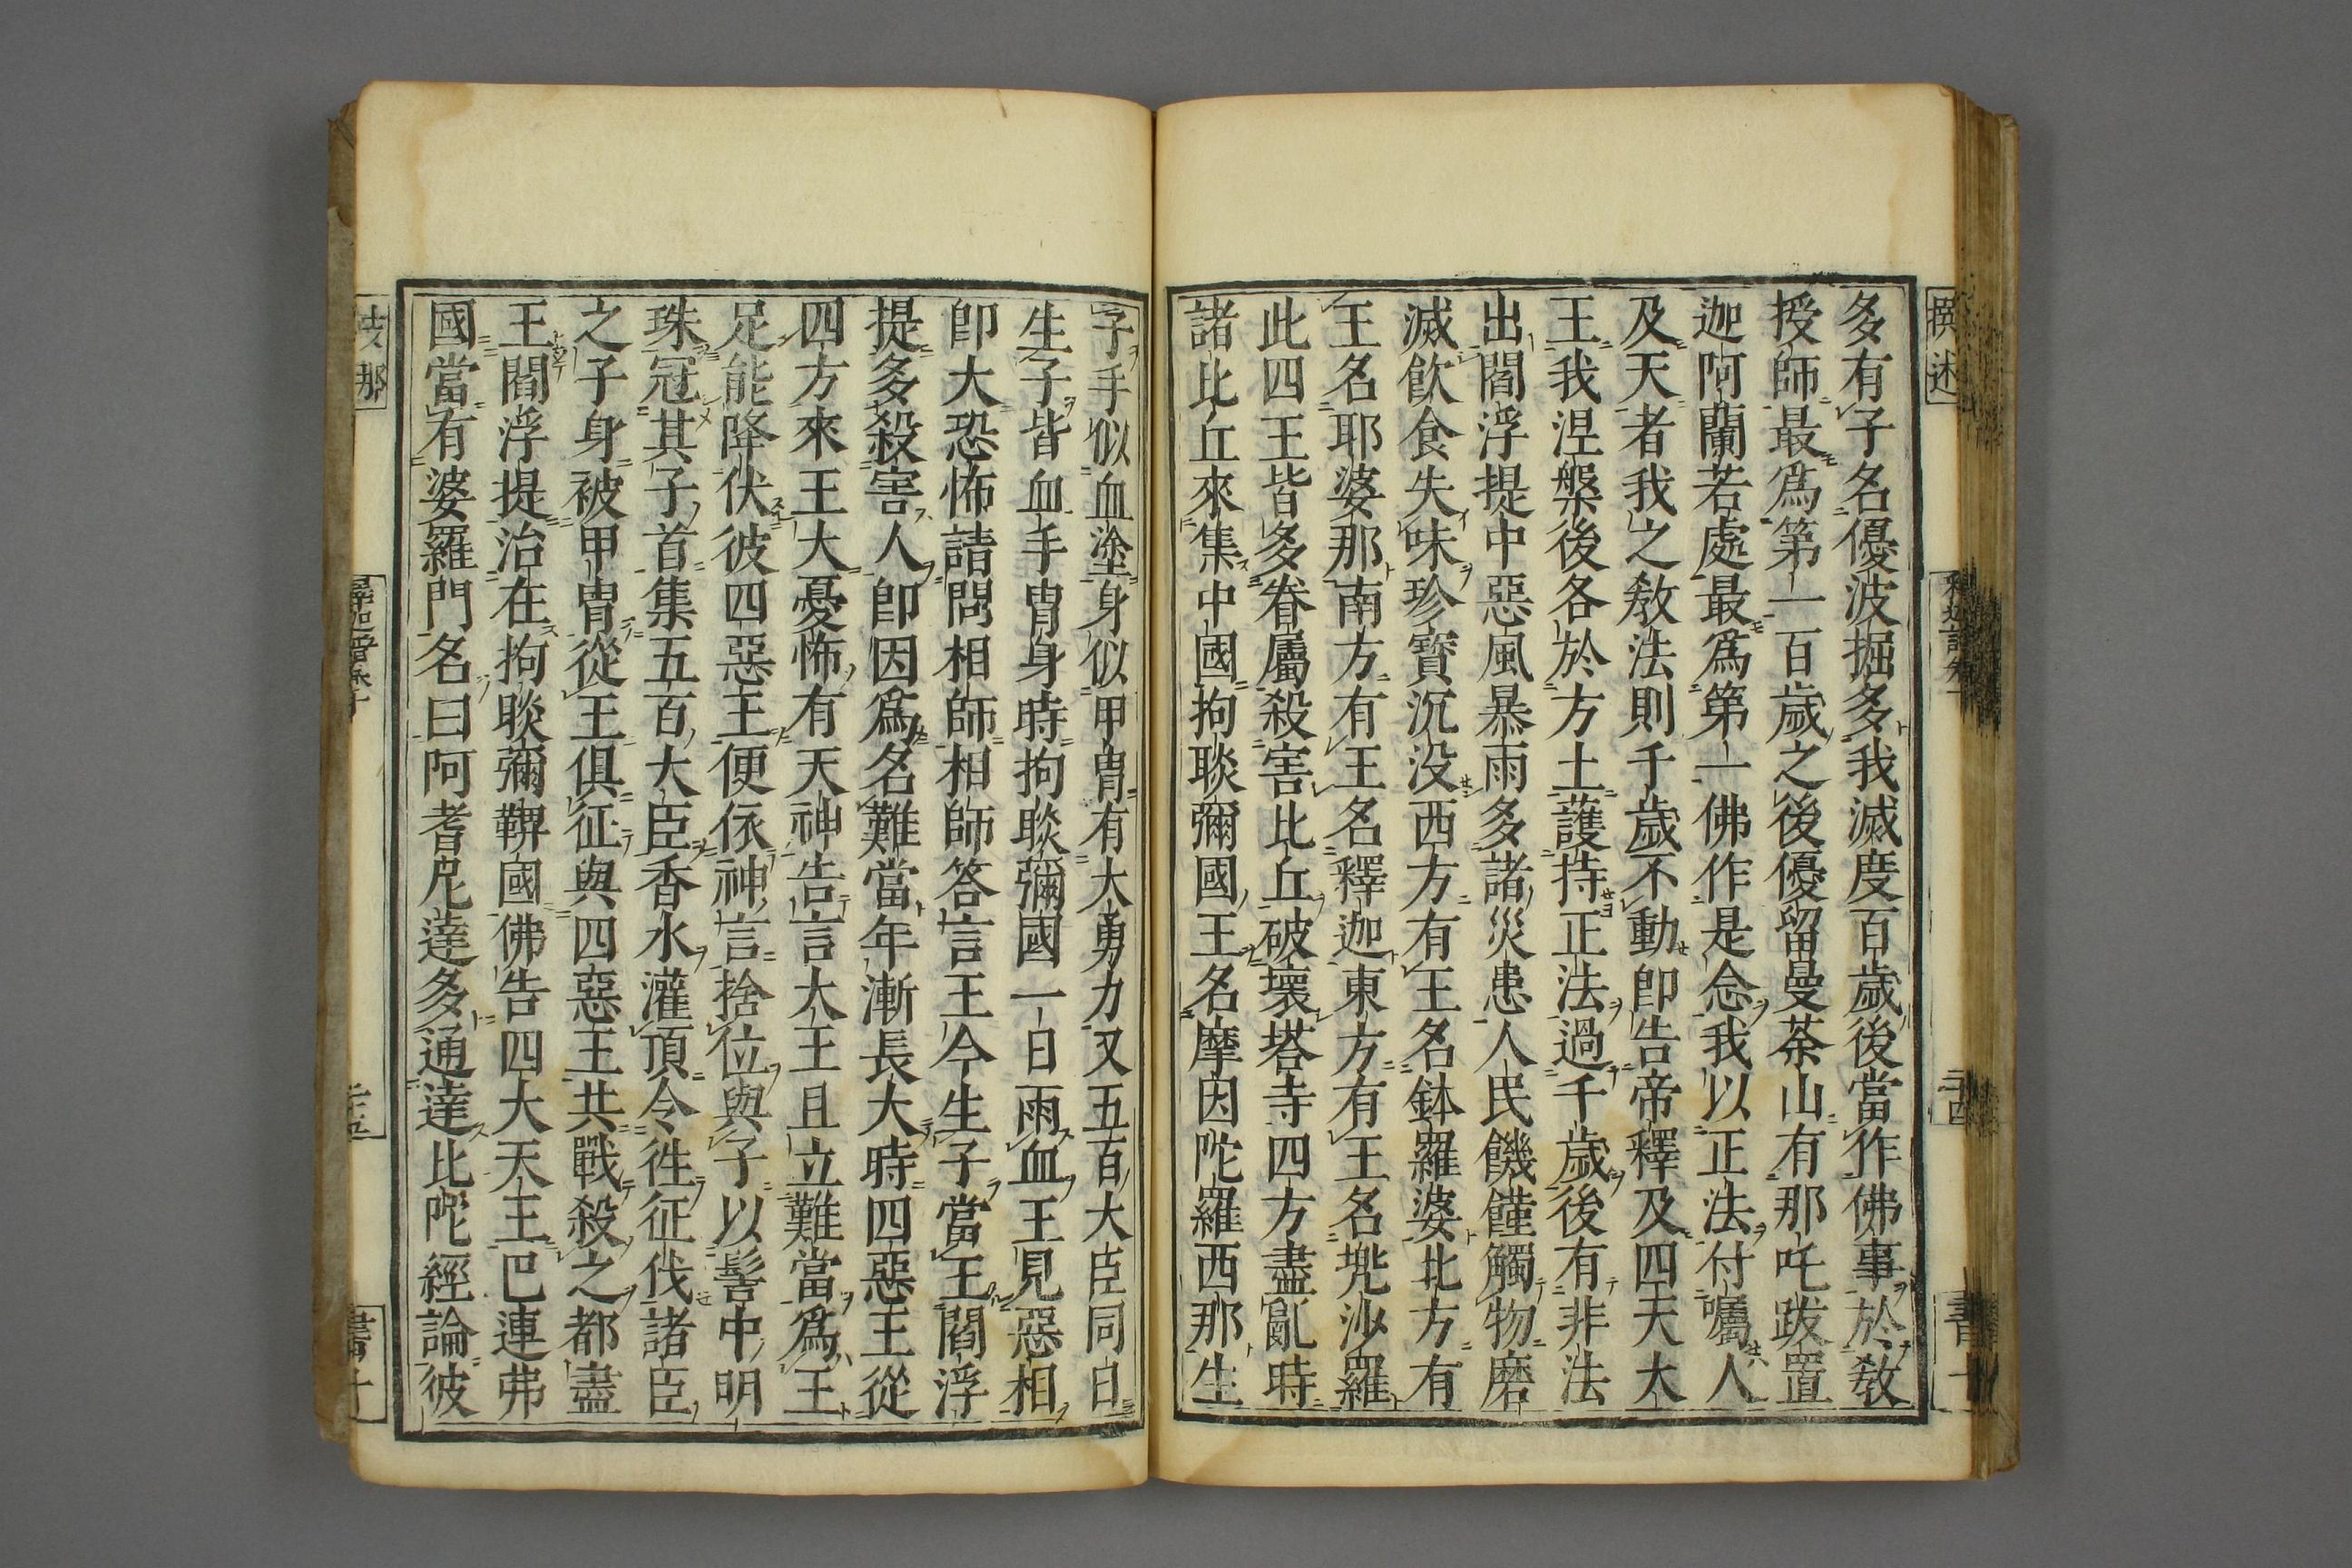 多有子名優波掘多我滅度百歲後當作佛事於教
授師最爲第一百歲之後優留曼荼山有那吒跋置
迦阿蘭若處最爲第一佛作是念我以正法付囑人
及天者我之教法則千歲不動即告帝釋及四天大
王我涅槃後各於方土護持正法過千歲後有非法
出閻浮提中惡風暴雨多諸災患人民饑饉觸物磨
滅飲食失味珍寶沉没西方有王名鉢羅婆北方有
王名耶婆那南方有王名釋迦東方有王名兠沙羅
此四王皆多眷屬殺害比丘破壞塔寺四方盡亂時
諸比丘來集中國拘睒彌國王名摩因陀羅西那生
子手似血塗身似甲冑有大勇力又五百大臣同日
生子皆血手冑身時拘睒彌國一日雨血王見惡相
即大恐怖請問相師相師答言王今生子當王閻浮
提多殺害人即因爲名難當年漸長大時四惡王從
四方來王大憂怖有天神告言大王且立難當爲王
足能降伏彼四惡王便依神言捨位與子以髻中明
珠冠其子首集五百大臣香水灌頂令徃征伐諸臣
之子身被甲冑從王俱征與四惡王共戰殺之都盡
王閻浮提治在拘睒彌鞞國佛告四大天王巴連弗
國當有婆羅門名曰阿耆尼達多通達比陀經論彼